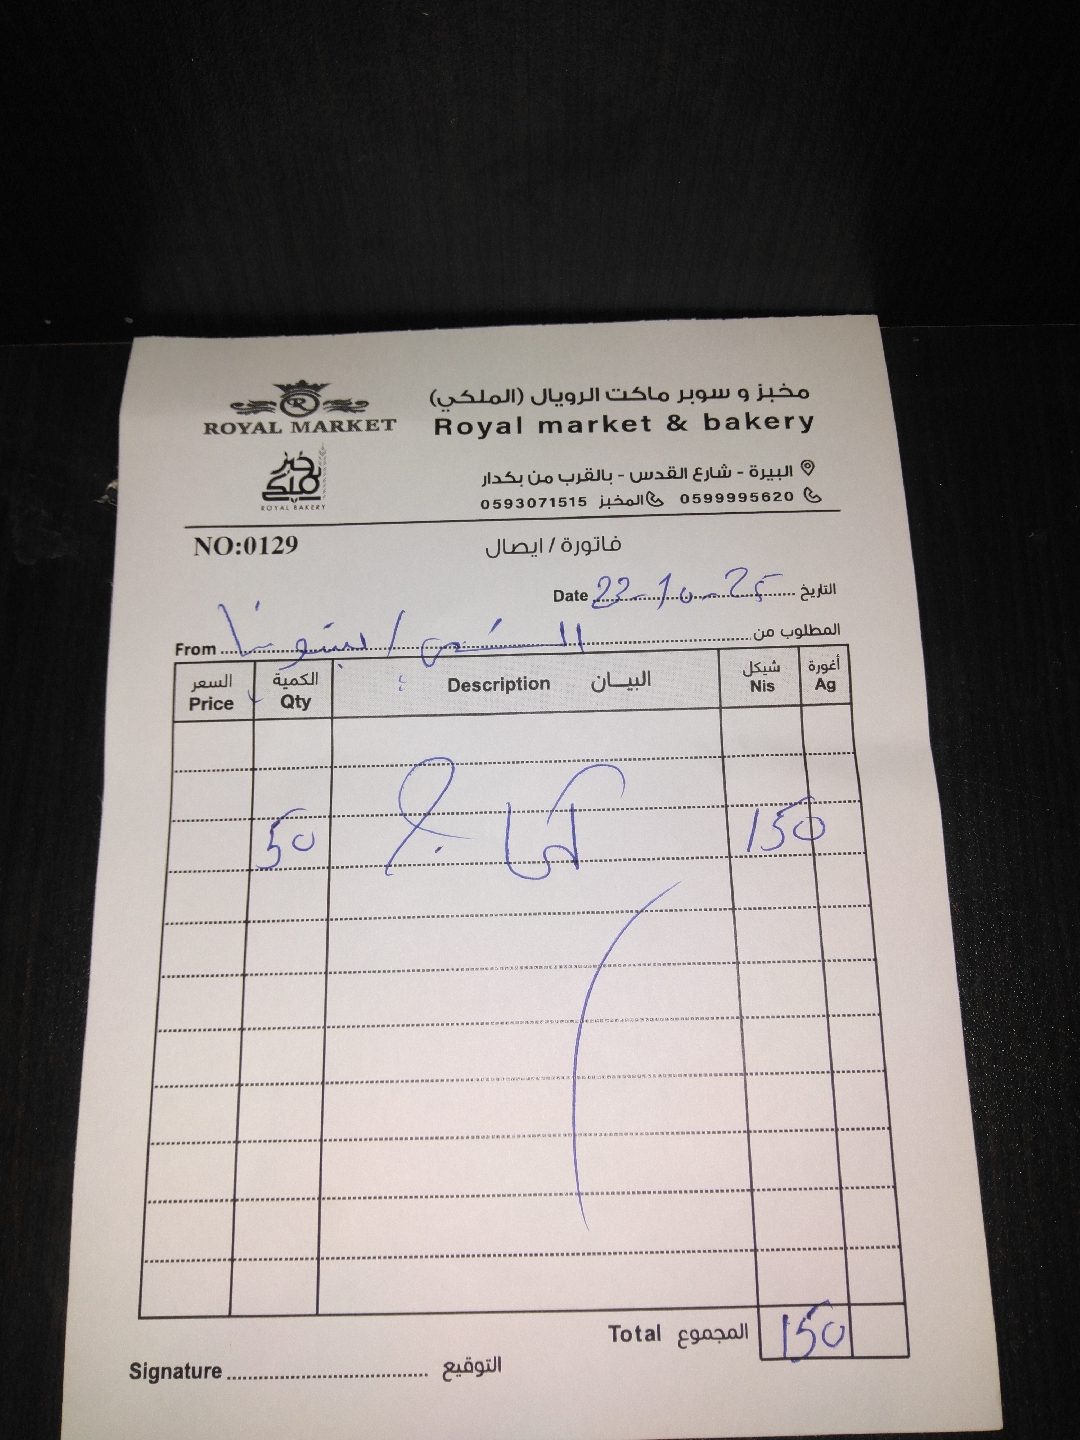 مخبز و سوبر ماكت الرويال (الملكي)
ROYAL MARKET
Royal market & bakery
خبز ملكي
ROYAL BAKERY
البيرة - شارع القدس - بالقرب من بكدار
0599995620 المخبز 0593071515
NO:0129
فاتورة / ايصال
Date 22-10-25 التاريخ
From المطلوب من
السعر الكمية البيـــان شيكل أغورة
Price Qty Description Nis Ag
50 150
Total المجموع 150
Signature التوقيع